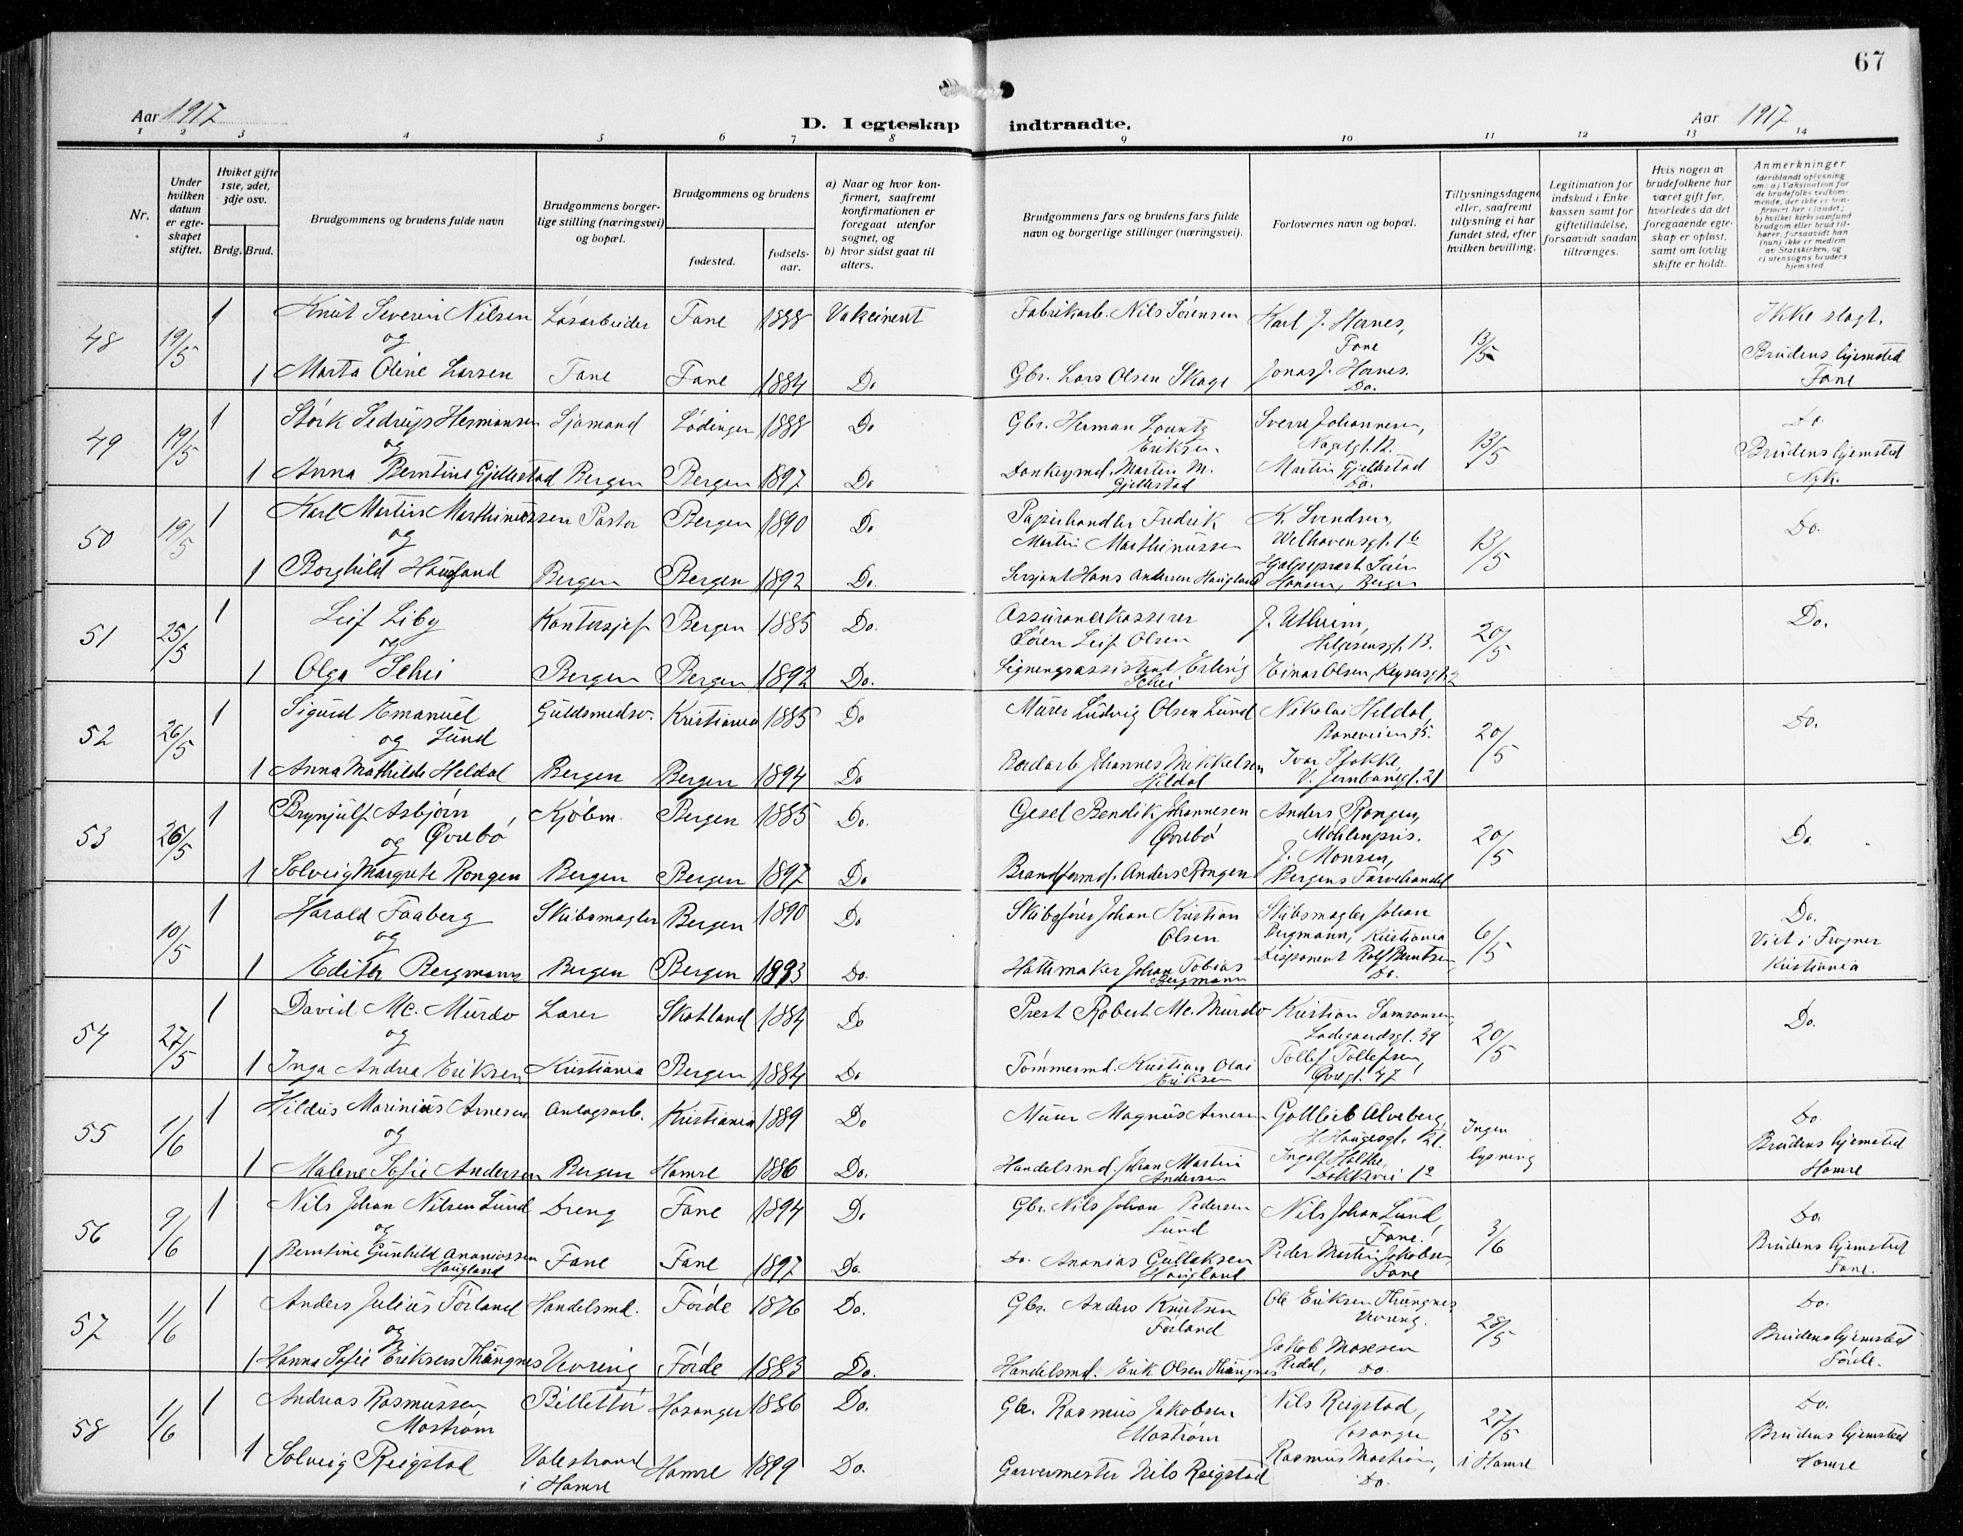 67
Aar 1917
D. I egteskap indtraadte.
Aar 1917
1 2 3 4 5 6 7 8 9 10 11 12 13 14
Nr.
Under hvilken datum er egteskapet stiftet.
Hvilket gifte 1ste, 2det, 3dje osv.
Brdg. Brud.
Brudgommens og brudens fulde navn
Brudgommens borgerlige stilling (næringsvei) og bopæl.
Brudgommens og brudens
fødested. fødselsaar.
a) Naar og hvor konfirmert, saafremt konfirmationen er foregaat utenfor sognet, og
b) hvor sidst gaat til alters.
Brudgommens fars og brudens fars fulde navn og borgerlige stillinger (næringsvei).
Forlovernes navn og bopæl.
Tillysningsdagene eller, saafremt tillysning ei har fundet sted, efter hvilken bevilling.
Legitimation for indskud i Enkekassen samt for giftetilladelse, forsaavidt saadan tiltrænges.
Hvis nogen av brudefolkene har været gift før, hvorledes da det foregaaende egteskap er opløst, samt om lovlig skifte er holdt.
Anmerkninger (deriblandt oplysning om: a) Vaksination for de brudefolks vedkommende, der ikke er konfirmert her i landet; b) hvilket kirkesamfund brudgom eller brud tilhører, forsaavidt han (hun) ikke er medlem av Statskirken, og c) utensogns bruders hjemsted
48 19/5 1 Knut Severin Nilsen Løsarbeider Fane 1888 Vakcinert Fabrikarb. Nils Sørensen Karl J. Hornes, Fane 13/5 Ikke slegt.
og
1 Marta Oline Larsen Fane Fane 1884 Do Gbr. Lars Olsen Skage Jonas J. Hornes. Do. Brudens hjemsted Fane
49 19/5 1 Størk Sedrup Hermansen Sjømand Lødingen 1888 Do Gbr. Herman Launtz Eriksen Sverre Johannesen, Nagelgt. 12. 13/5 Do.
og
1 Anna Berntine Gjellestad Bergen Bergen 1897 Do Donkeymd. Martin M. Gjellestad Martin Gjellestad Do. Brudens hjemsted Nyk.
50 19/5 1 Karl Martin Marthinussen Pastor Bergen 1890 Do Papirhandler Fredrik Martin Marthinussen K. Svendsen, Welhavensgt. 1b 13/5 Do.
og
1 Borghild Haugland Bergen Bergen 1892 Do. Sersjant Hans Andersen Haugland Hansen, Bergen
51 25/5 1 Leif Liby Kontorsjef Bergen 1885 Do. Assurancekasserer Søren Leif Olsen J. Utheim, Helgesensgt. 13. 20/5 Do.
og
1 Olga Schei Bergen Bergen 1892 Do. Ligningsassistent Erling Schei Einar Olsen, Keysersgt. 2
52 26/5 1 Sigurd Emanuel Lund Guldsmedsv. Kristiania 1885 Do Murer Ludvig Olsen Lund Nikolai Heldal, Baneveien 35. 20/5 Do.
og
1 Anna Mathilde Heldal Bergen Bergen 1894 Do Bordarb. Johannes Mikkelsen Heldal Ivar Stokke, V. Jernbanegt. 21
53 26/5 1 Brynjulf Asbjørn Øvrebø Kjøbm. Bergen 1885 Do. Gesel Bendik Johannesen Øvrebø Anders Rongen, Møhlenpris. 20/5 Do.
og
1 Solveig Margrete Rongen Bergen Bergen 1897 Do Brandformd. Anders Rongen J. Monsen, Bergens Farvehandel
10/5 1 Harald Faaberg Skibsmægler Bergen 1890 Do Skibsfører Johan Kristian Olsen Skibsmægler Johan Bergmann, Kristiania 6/5 Do.
og
1 Edith Bergmann Bergen Bergen 1893 Do. Hattemaker Johan Tobias Bergmann Disponent Rolf Berntsen, Do. Viet i Frogner Kristiania
54 27/5 1 David Mc. Murdo Lærer Skotland 1884 Do Prest Robert Mc. Murdo Kristian Samsonsen, Ladegaardsgt. 39 20/5 Do.
og
1 Inga Andrea Eriksen Kristiania Bergen 1884 Do Tømmermd. Kristian Olai Eriksen Tollef Tollefsen, Øvregt. 47
55 1/6 1 Hildus Marinius Arnesen Anlægsarb. Kristiania 1889 Do Murer Magnus Arnesen Gottlieb Alveberg, Ingen lysning Do
og
1 Malene Sofie Andersen Bergen Hamre 1886 Do. Handelsmd. Johan Martin Andersen Ingolf Holthe, Brudens hjemsted Hamre
56 9/6 1 Nils Johan Nilsen Lund Dreng Fane 1894 Do Gbr. Nils Johan Pedersen Lund Nils Johan Lund, Fane. 3/6 Do.
og
1 Berntine Gunhild Ananiassen Haugland Fane Fane 1897 Do. Do. Ananias Gullaksen Haugland Peder Martin Jakobsen, Fane Brudens hjemsted Fane.
57 1/6 1 Anders Julius Førland Handelsmd. Førde 1876 Do. Gbr. Anders Knutsen Førland Ole Eriksen Thingnes Vevring. 28/5 Do.
og
1 Hanna Sofie Eriksen Thingnes Vevring Førde 1883 Do. Handelsmd. Erik Olsen Thingnes Jakob Mosesen Redal, Do. Brudens hjemsted Førde.
58 1/6 1 Andreas Rasmussen Mostrøm Billettør Hosanger 1886 Do. Gbr. Rasmus Jakobsen Mostrøm Nils Reigstad, Hosanger 27/5 Do.
og
1 Solveig Reigstad Valestrand i Hamre Hamre 1899 Do. Garvermester Nils Reigstad Rasmus Mostrøm, Do. i Hamre Brudens hjemsted Hamre